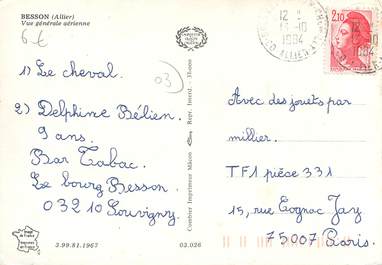 BESSON (Allier)
Vue générale aérienne
6 €
1) Le cheval.
03
2) Delphine Bélien.
9 ans.
Bar Tabac.
Le bourg Besson.
03210 Souvigny.
3.99.81.1967
03.026
Combier Imprimeur Mâcon
Repr. Interd.
2,10
1984
ALLIER
Avec des jouets par
millier.
TF1 pièce 331
15, rue Cognac Jay
75007 Paris.